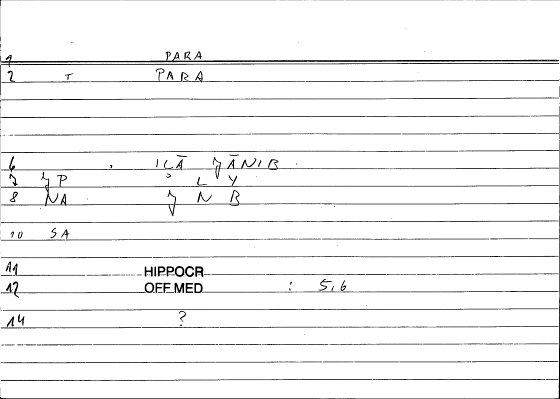 1 PARA
2 T PARA
6 . ILĀ ʿĀNIB
7 ʿP L Y
8 NA ʿ N B
10 SA
11 HIPPOCR
12 OFF.MED : 5,6
14 ?